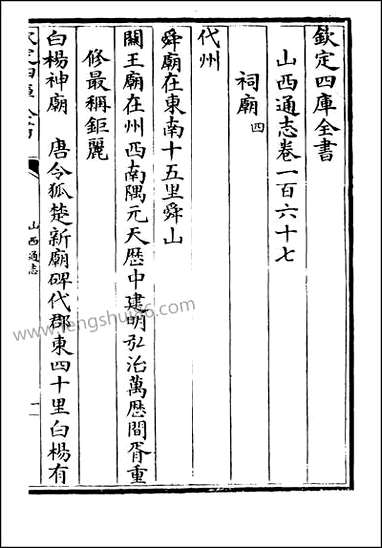 欽定四庫全書
山西通志卷一百六十七
祠廟四
代州
舜廟在東南十五里舜山
關王廟在州西南隅元天厯中建明弘治萬厯間胥重
修最稱鉅麗
白楊神廟　唐令狐楚新廟碑代郡東四十里白楊有
山西通志
一
www.fengshui86.com